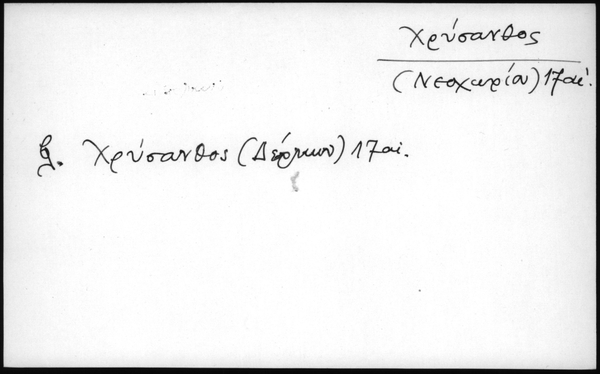 Χρύσανθος
(Νεοχωρίου) 17 αἰ.
βλ. Χρύσανθος (Δέρκων) 17 αἰ.